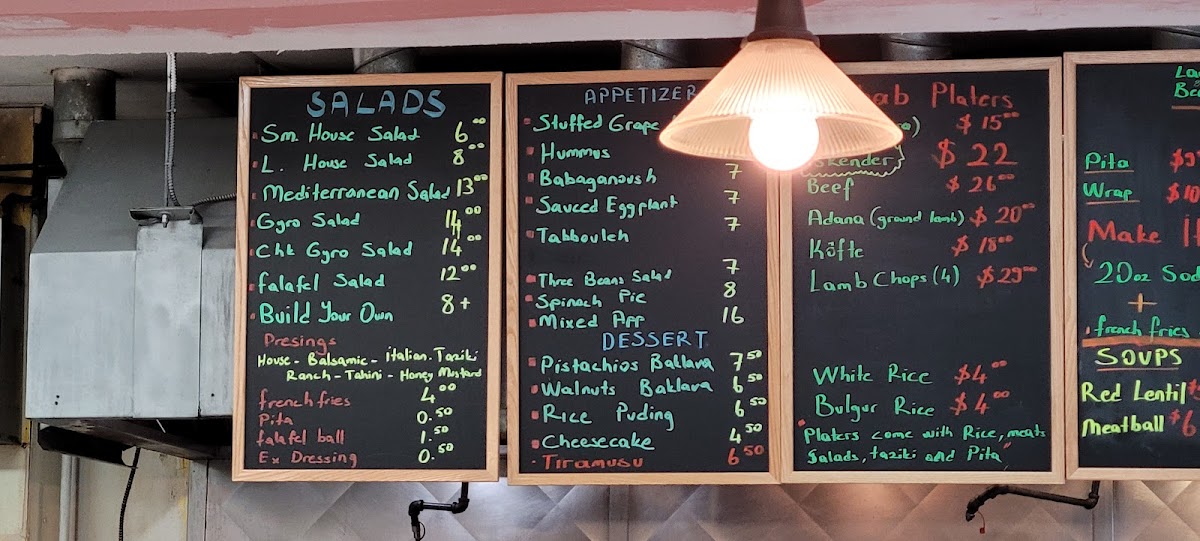 SALADS
Sm. House Salad 6.00
L. House Salad 8.00
Mediterranean Salad 13.00
Gyro Salad 14.00
Chk Gyro Salad 14.00
falafel Salad 12.00
Build Your Own 8+
Presings
House - Balsamic - italian. Taziki
Ranch - Tahini - Honey Mustard
french fries 4.00
Pita 0.50
falafel ball 1.50
Ex Dressing 0.50
APPETIZER
Stuffed Grape
Hummus
Babaganoush 7
Sauced Eggplant 7
Tabbouleh 7
Three Beans Salad 7
Spinach Pie 8
Mixed App 16
DESSERT
Pistachios Baklava 7.50
Walnuts Baklava 6.50
Rice Puding 6.50
Cheesecake 4.50
Tiramusu 6.50
Platers
$15.00
$22
Beef $26.00
Adana (ground lamb) $20.00
Köfte $18.00
Lamb Chops (4) $29.00
White Rice $4.00
Bulgur Rice $4.00
"Platers come with Rice, meats
Salads, taziki and Pita"
Pita
Wrap
Make
20oz
+
french fries
SOUPS
Red Lentil
Meatball $6